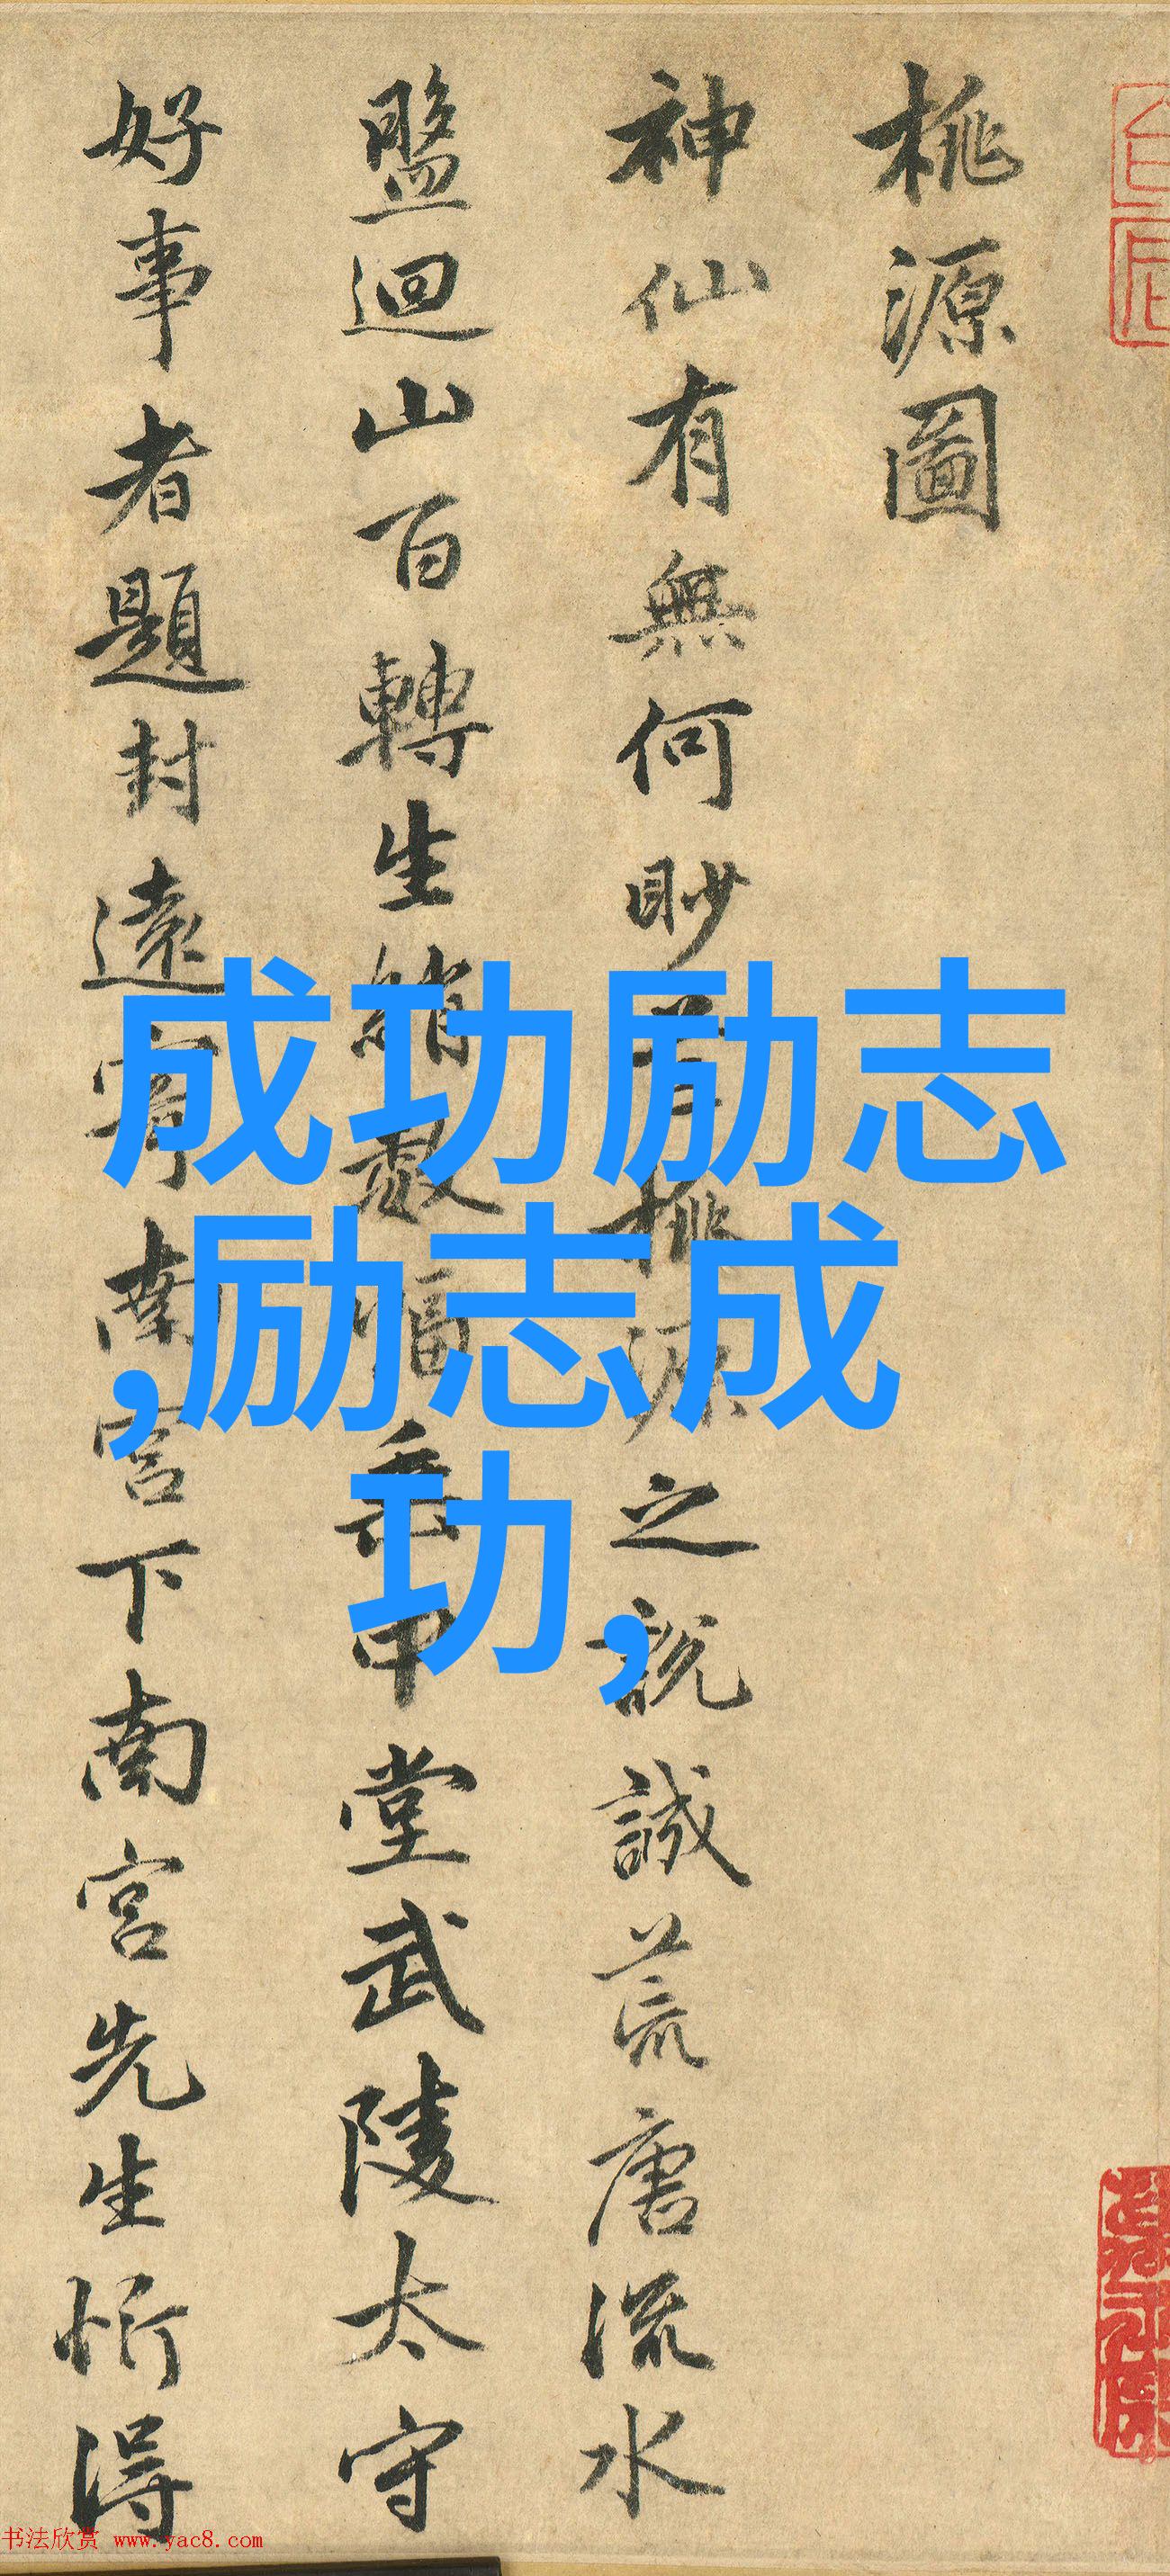 桃源圖
神仙有無何眇芒桃源之說誠荒唐流水
盤迴山百轉生綃數幅垂中堂武陵太守
好事者題封遠寄南宮下南宮先生忻得
成功励志
,励志成
功,
书法欣赏 www.yac8.com